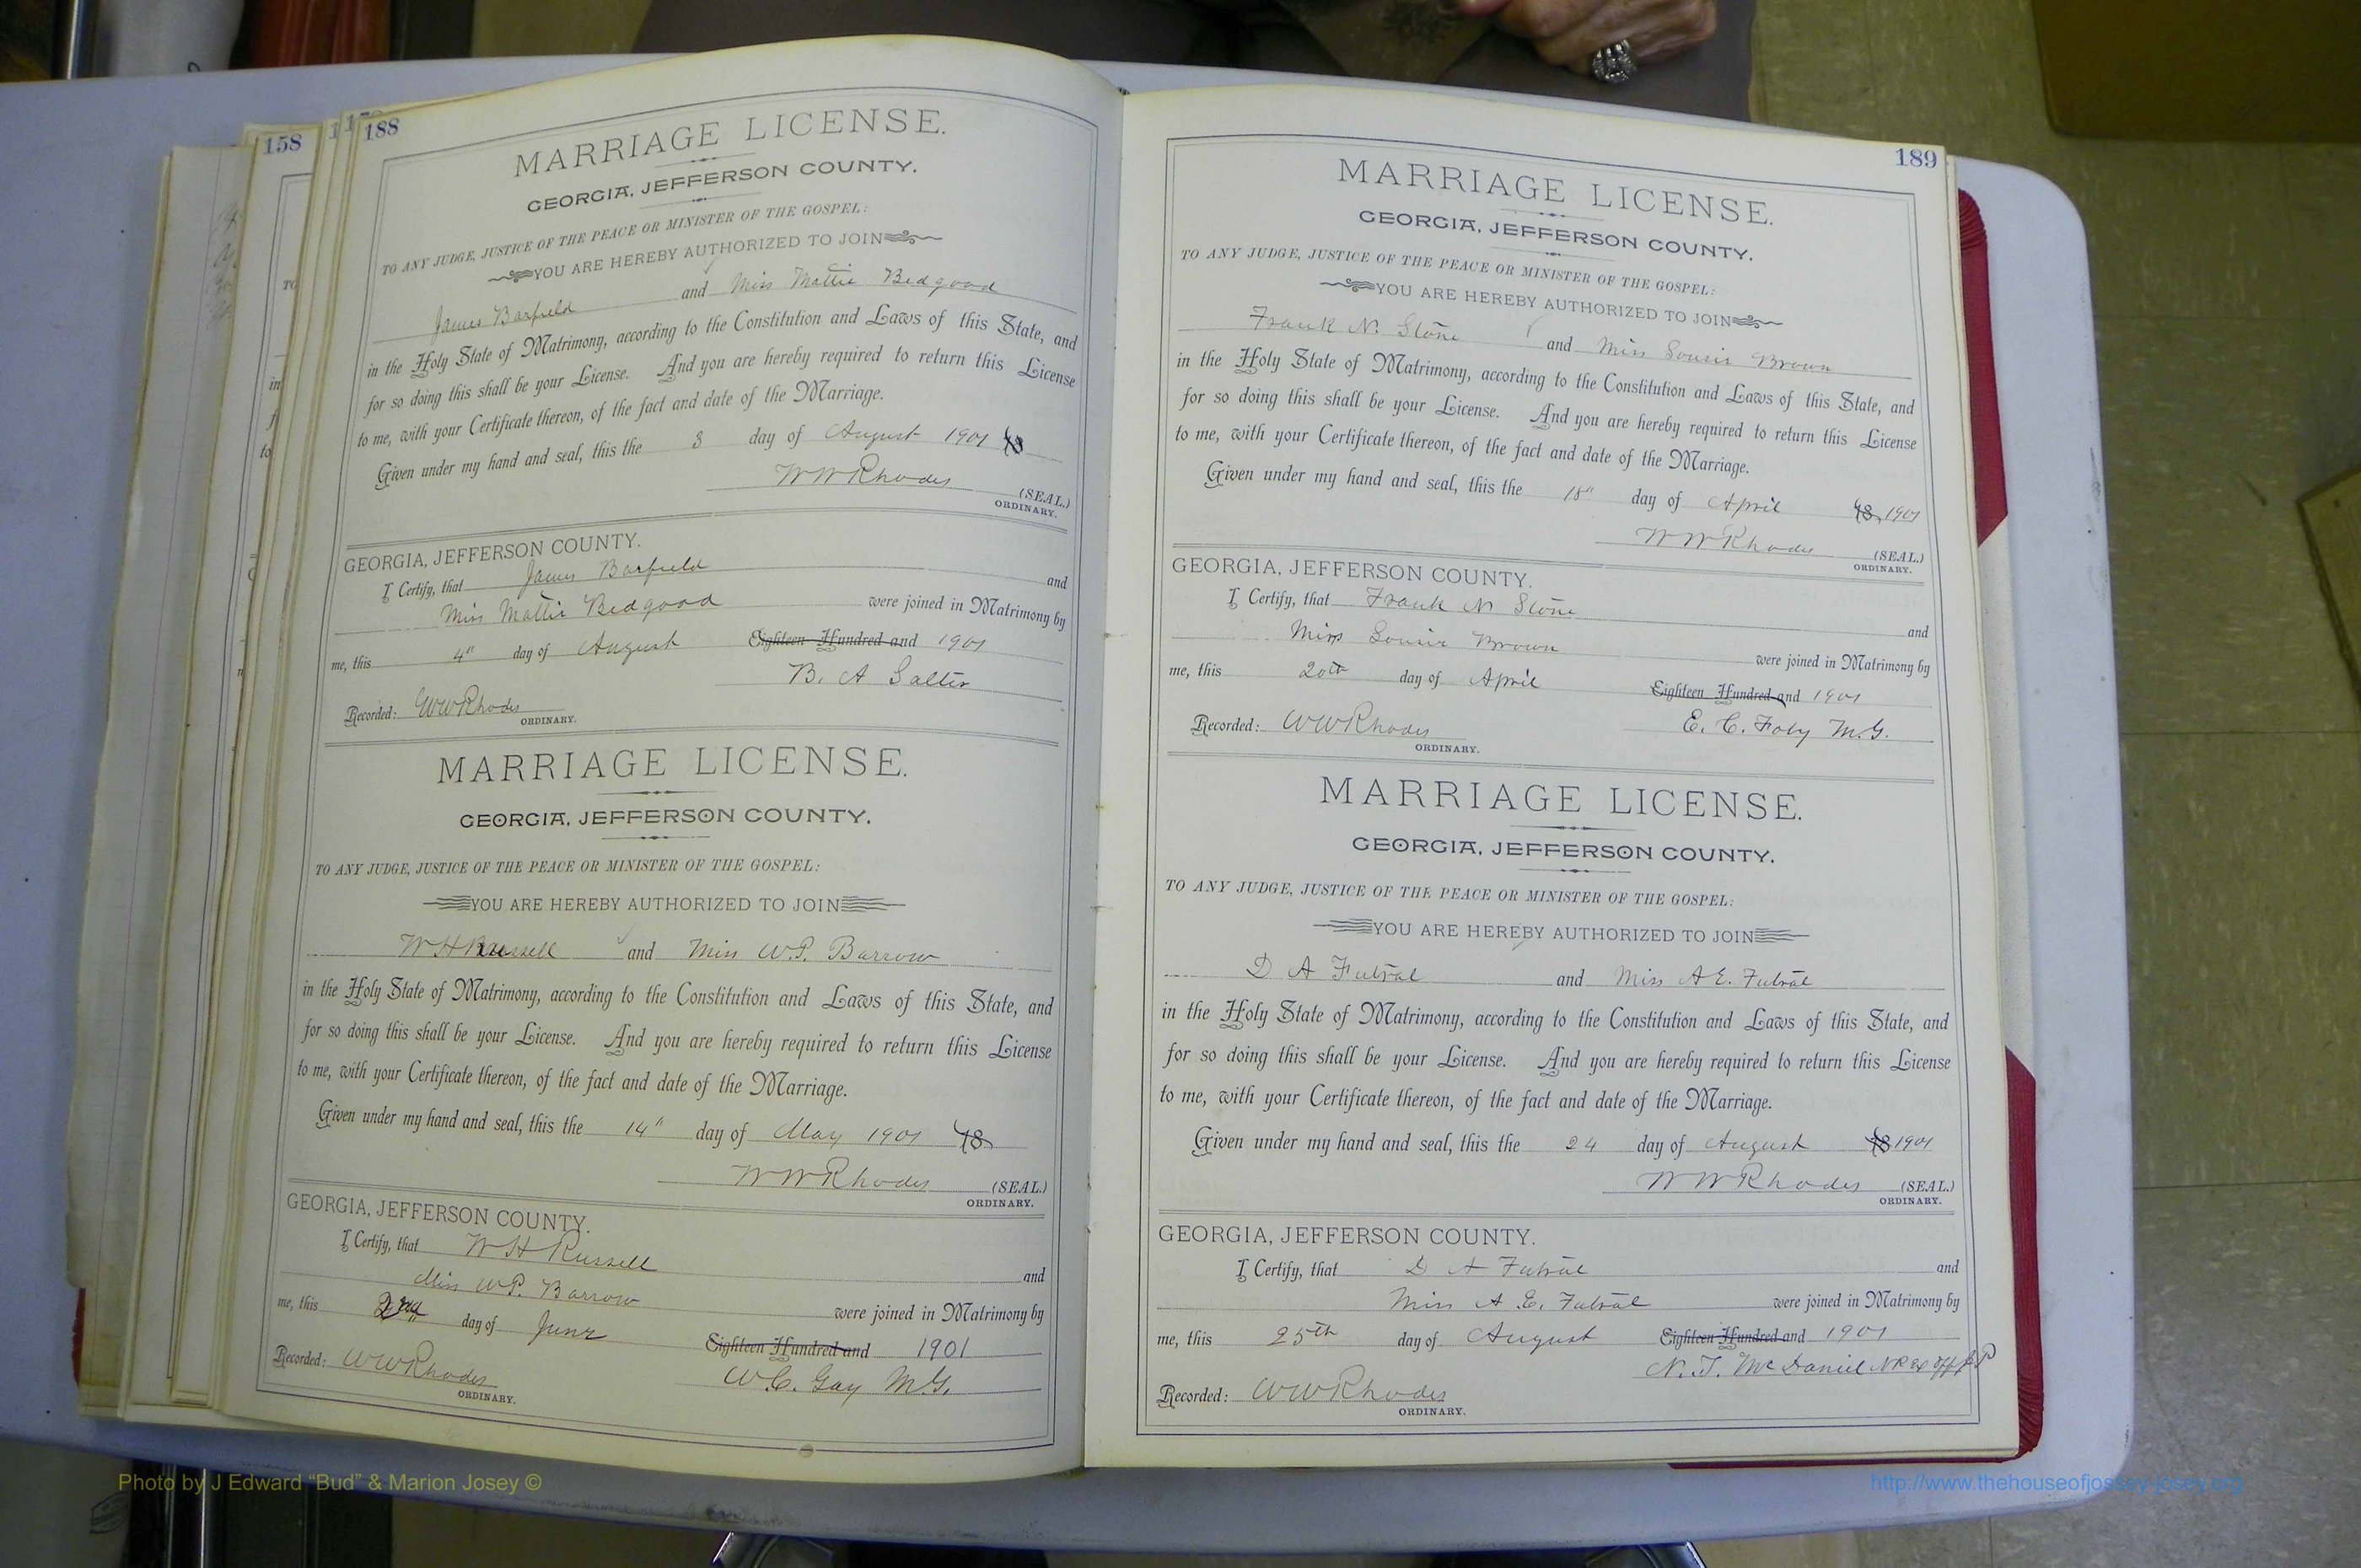 158
188
MARRIAGE LICENSE.
GEORGIA, JEFFERSON COUNTY.
TO ANY JUDGE, JUSTICE OF THE PEACE OR MINISTER OF THE GOSPEL:
YOU ARE HEREBY AUTHORIZED TO JOIN
James Barfield and Miss Mattie Bedgood
in the Holy State of Matrimony, according to the Constitution and Laws of this State, and
for so doing this shall be your License. And you are hereby required to return this License
to me, with your Certificate thereon, of the fact and date of the Marriage.
Given under my hand and seal, this the 3 day of August 1901 18
WWRhodes (SEAL.)
ORDINARY.
GEORGIA, JEFFERSON COUNTY.
I Certify, that James Barfield and
Miss Mattie Bedgood were joined in Matrimony by
me, this 4" day of August Eighteen Hundred and 1901
B. A Salter
Recorded: WWRhodes
ORDINARY.
MARRIAGE LICENSE.
GEORGIA, JEFFERSON COUNTY.
TO ANY JUDGE, JUSTICE OF THE PEACE OR MINISTER OF THE GOSPEL:
YOU ARE HEREBY AUTHORIZED TO JOIN
W H Russell and Miss W.P. Barrow
in the Holy State of Matrimony, according to the Constitution and Laws of this State, and
for so doing this shall be your License. And you are hereby required to return this License
to me, with your Certificate thereon, of the fact and date of the Marriage.
Given under my hand and seal, this the 14" day of May 1901 18
WWRhodes (SEAL.)
ORDINARY.
GEORGIA, JEFFERSON COUNTY.
I Certify, that W H Russell and
Miss W.P. Barrow were joined in Matrimony by
me, this day of June Eighteen Hundred and 1901
W.C. Gay M.G.
Recorded: WWRhodes
ORDINARY.
189
MARRIAGE LICENSE.
GEORGIA, JEFFERSON COUNTY.
TO ANY JUDGE, JUSTICE OF THE PEACE OR MINISTER OF THE GOSPEL:
YOU ARE HEREBY AUTHORIZED TO JOIN
Frank N. Stone and Miss Brown
in the Holy State of Matrimony, according to the Constitution and Laws of this State, and
for so doing this shall be your License. And you are hereby required to return this License
to me, with your Certificate thereon, of the fact and date of the Marriage.
Given under my hand and seal, this the 18" day of April 18 1901
WWRhodes (SEAL.)
ORDINARY.
GEORGIA, JEFFERSON COUNTY.
I Certify, that Frank N Stone and
Miss Brown were joined in Matrimony by
me, this 20th day of April Eighteen Hundred and 1901
E. C. M.G.
Recorded: WWRhodes
ORDINARY.
MARRIAGE LICENSE.
GEORGIA, JEFFERSON COUNTY.
TO ANY JUDGE, JUSTICE OF THE PEACE OR MINISTER OF THE GOSPEL:
YOU ARE HEREBY AUTHORIZED TO JOIN
D A Futral and Miss A E. Futral
in the Holy State of Matrimony, according to the Constitution and Laws of this State, and
for so doing this shall be your License. And you are hereby required to return this License
to me, with your Certificate thereon, of the fact and date of the Marriage.
Given under my hand and seal, this the 24 day of August 18 1901
WWRhodes (SEAL.)
ORDINARY.
GEORGIA, JEFFERSON COUNTY.
I Certify, that D A Futral and
Miss A. E. Futral were joined in Matrimony by
me, this 25th day of August Eighteen Hundred and 1901
N. J. McDaniel NP ex off J P
Recorded: WWRhodes
ORDINARY.
Photo by J Edward “Bud” & Marion Josey ©
http://www.thehouseofjossey-josey.org